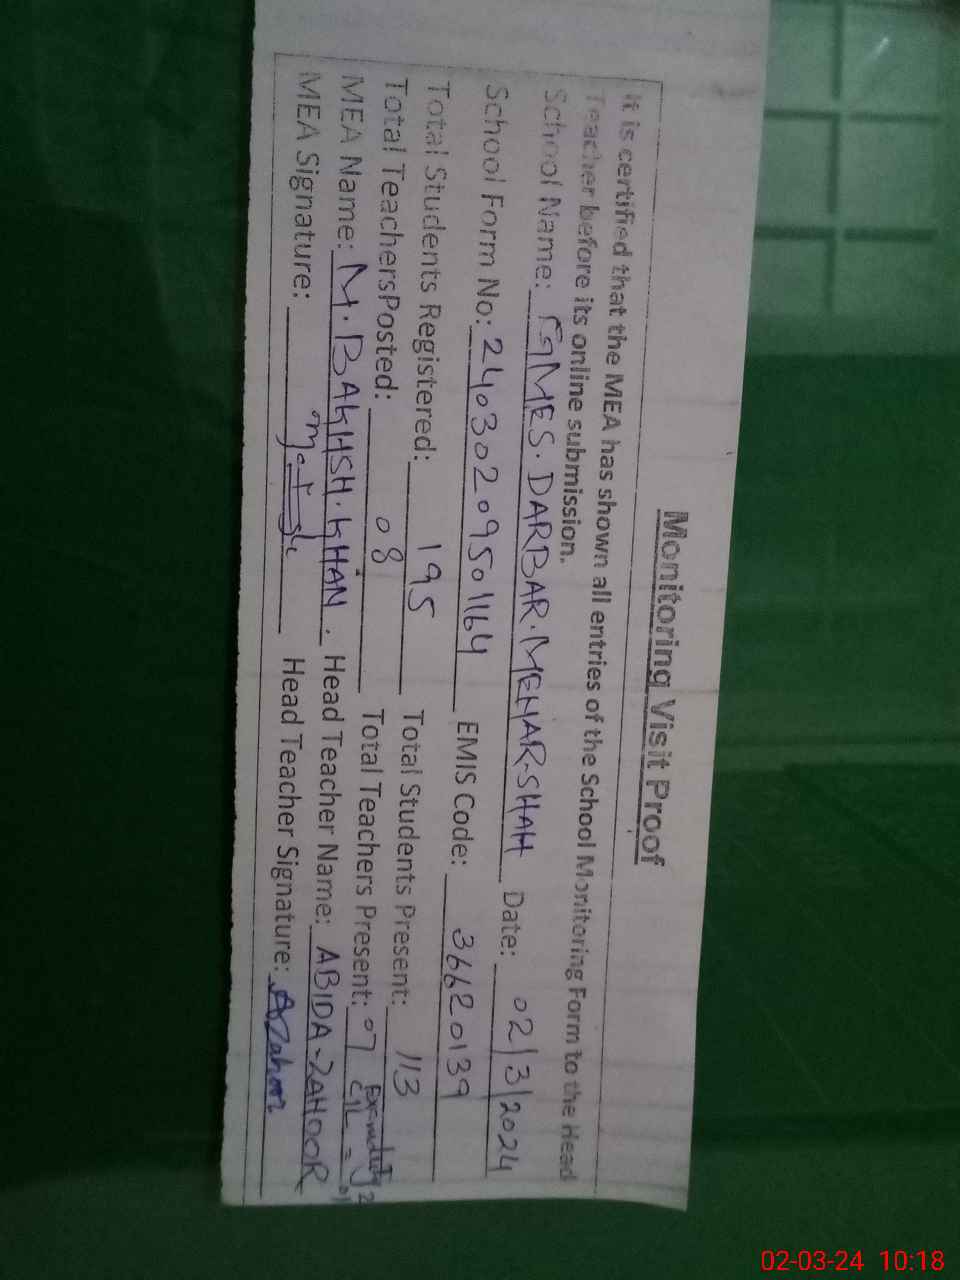 Monitoring Visit Proof
It is certified that the MEA has shown all entries of the School Monitoring Form to the Head
Teacher before its online submission.
School Name: GMES. DARBAR. MEHAR-SHAH Date: 02/3/2024
School Form No: 2403020950 1164 EMIS Code: 36620139
Total Students Registered: 195 Total Students Present: 113
Total TeachersPosted: 08 Total Teachers Present: 07 C/L = 01
MEA Name: M. BAKHSH. KHAN. Head Teacher Name: ABIDA-ZAHOOR
MEA Signature: Head Teacher Signature: AZahoor
02-03-24 10:18